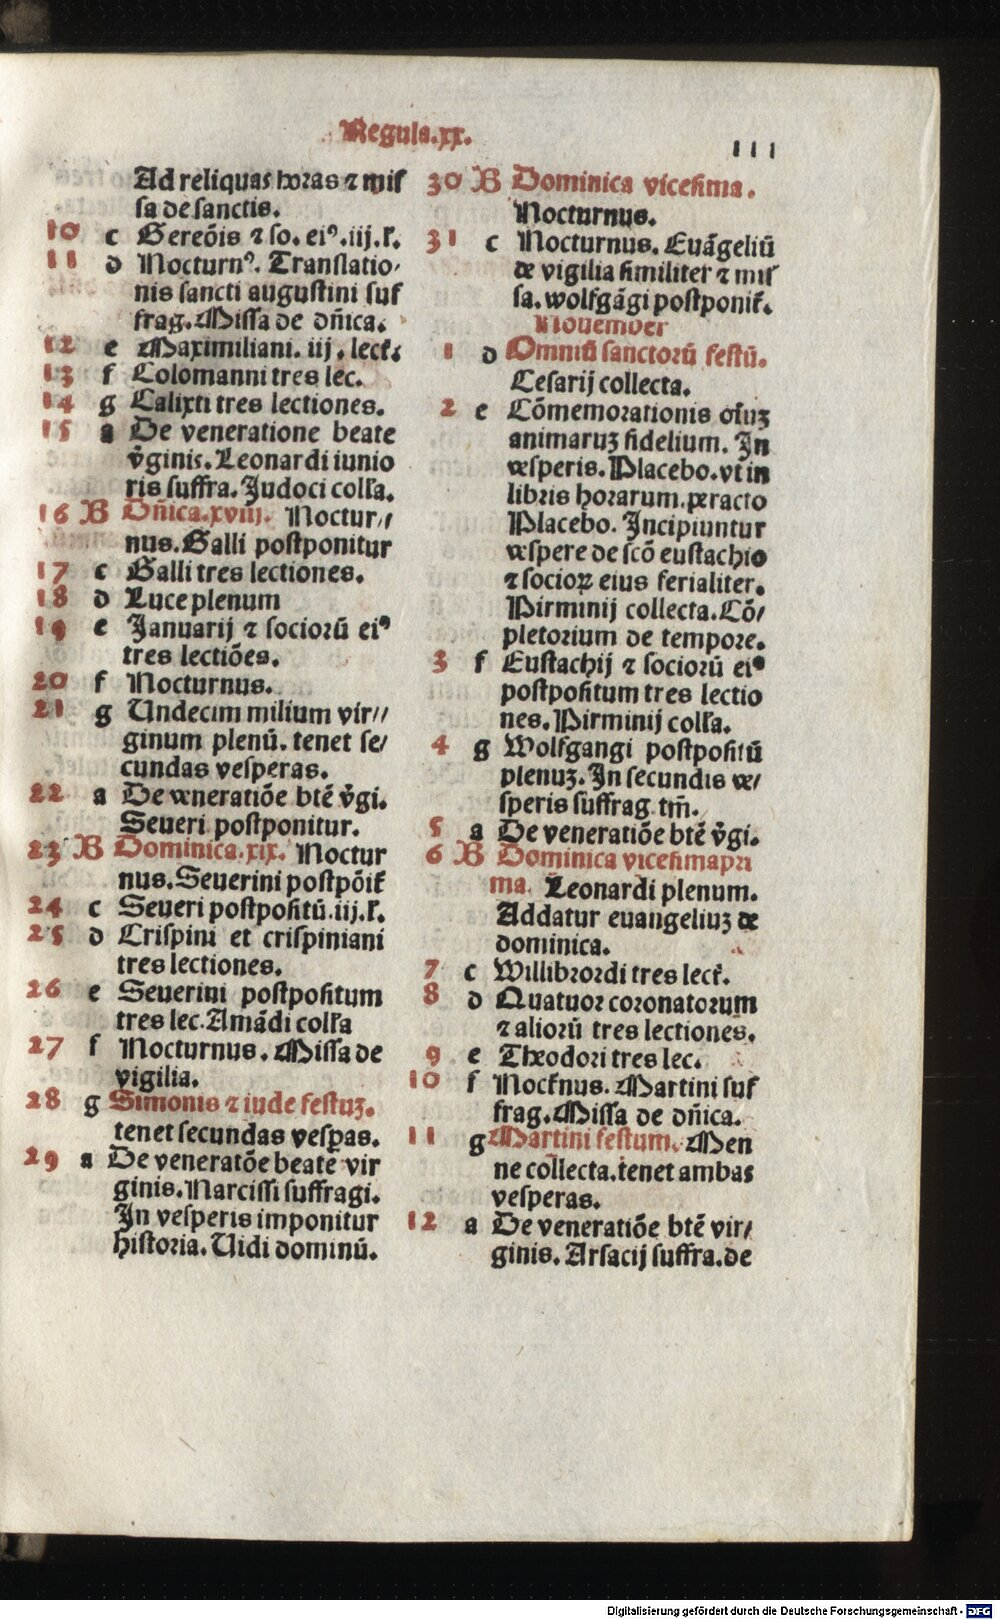 Regula.xx.
111
Ad reliquas horas ⁊ miſ
ſa de ſanctis.
10 c Gereõis ⁊ ſo. eiꝰ.iij.ł.
11 d Nocturnꝰ. Tranſlatio/
nis ſancti auguſtini ſuf
frag. Miſſa de dñica.
12 e Maximiliani. iij. lect̃.
13 f Colomanni tres lec.
14 g Calixti tres lectiones.
15 a De veneratione beate
v̄ginis. Leonardi iunio
ris ſuffra. Judoci colła.
16 B Dñica.xviij. Noctur//
nus. Galli poſtponitur
17 c Galli tres lectiones.
18 d Luce plenum
19 e Januarij ⁊ ſociorū eiꝰ
tres lectiões.
20 f Nocturnus.
21 g Undecim milium vir//
ginum plenū. tenet ſe/
cundas veſperas.
22 a De veneratiõe btē v̄gi.
Seueri poſtponitur.
23 B Dominica.xix. Noctur
nus. Seuerini poſtpõit̃
24 c Seueri poſtpoſitū.iij.ł.
25 d Criſpini et criſpiniani
tres lectiones.
26 e Seuerini poſtpoſitum
tres lec. Amãdi colła
27 f Nocturnus. Miſſa de
vigilia.
28 g Simonis ⁊ iude feſtuꝫ.
tenet ſecundas veſꝑas.
29 a De veneratõe beate vir
ginis. Narciſſi ſuffragi.
In veſperis imponitur
hiſtoria. Uidi dominū.
30 B Dominica viceſima.
Nocturnus.
31 c Nocturnus. Euãgeliū
de vigilia ſimiliter ⁊ miſ
ſa. wolfgãgi poſtponit̃.
Nouember
1 d Omniū ſanctorū feſtū.
Ceſarij collecta.
2 e Cõmemorationis oĩuꝫ
animaruꝫ fidelium. In
veſperis. Placebo. vt in
libris horarum. peracto
Placebo. Incipiuntur
veſpere de ſcõ euſtachio
⁊ ſocioꝝ eius ferialiter.
Pirminij collecta. Cõ/
pletorium de tempore.
3 f Euſtachij ⁊ ſociorū eiꝰ
poſtpoſitum tres lectio
nes. Pirminij colła.
4 g Wolfgangi poſtpoſitū
plenuꝫ. In ſecundis ve/
ſperis ſuffrag. tm̄.
5 a De veneratiõe btē v̄gi.
6 B Dominica viceſimapri
ma. Leonardi plenum.
Addatur euangeliuꝫ de
dominica.
7 c Willibrordi tres lect̃.
8 d Quatuor coronatorum
⁊ aliorū tres lectiones.
9 e Theodori tres lec.
10 f Noct̃nus. Martini ſuf
frag. Miſſa de dñica.
11 g Martini feſtum. Men
ne collecta. tenet ambas
veſperas.
12 a De veneratiõe btē vir/
ginis. Arſacij ſuffra. de
Digitalisierung gefördert durch die Deutsche Forschungsgemeinschaft - DFG